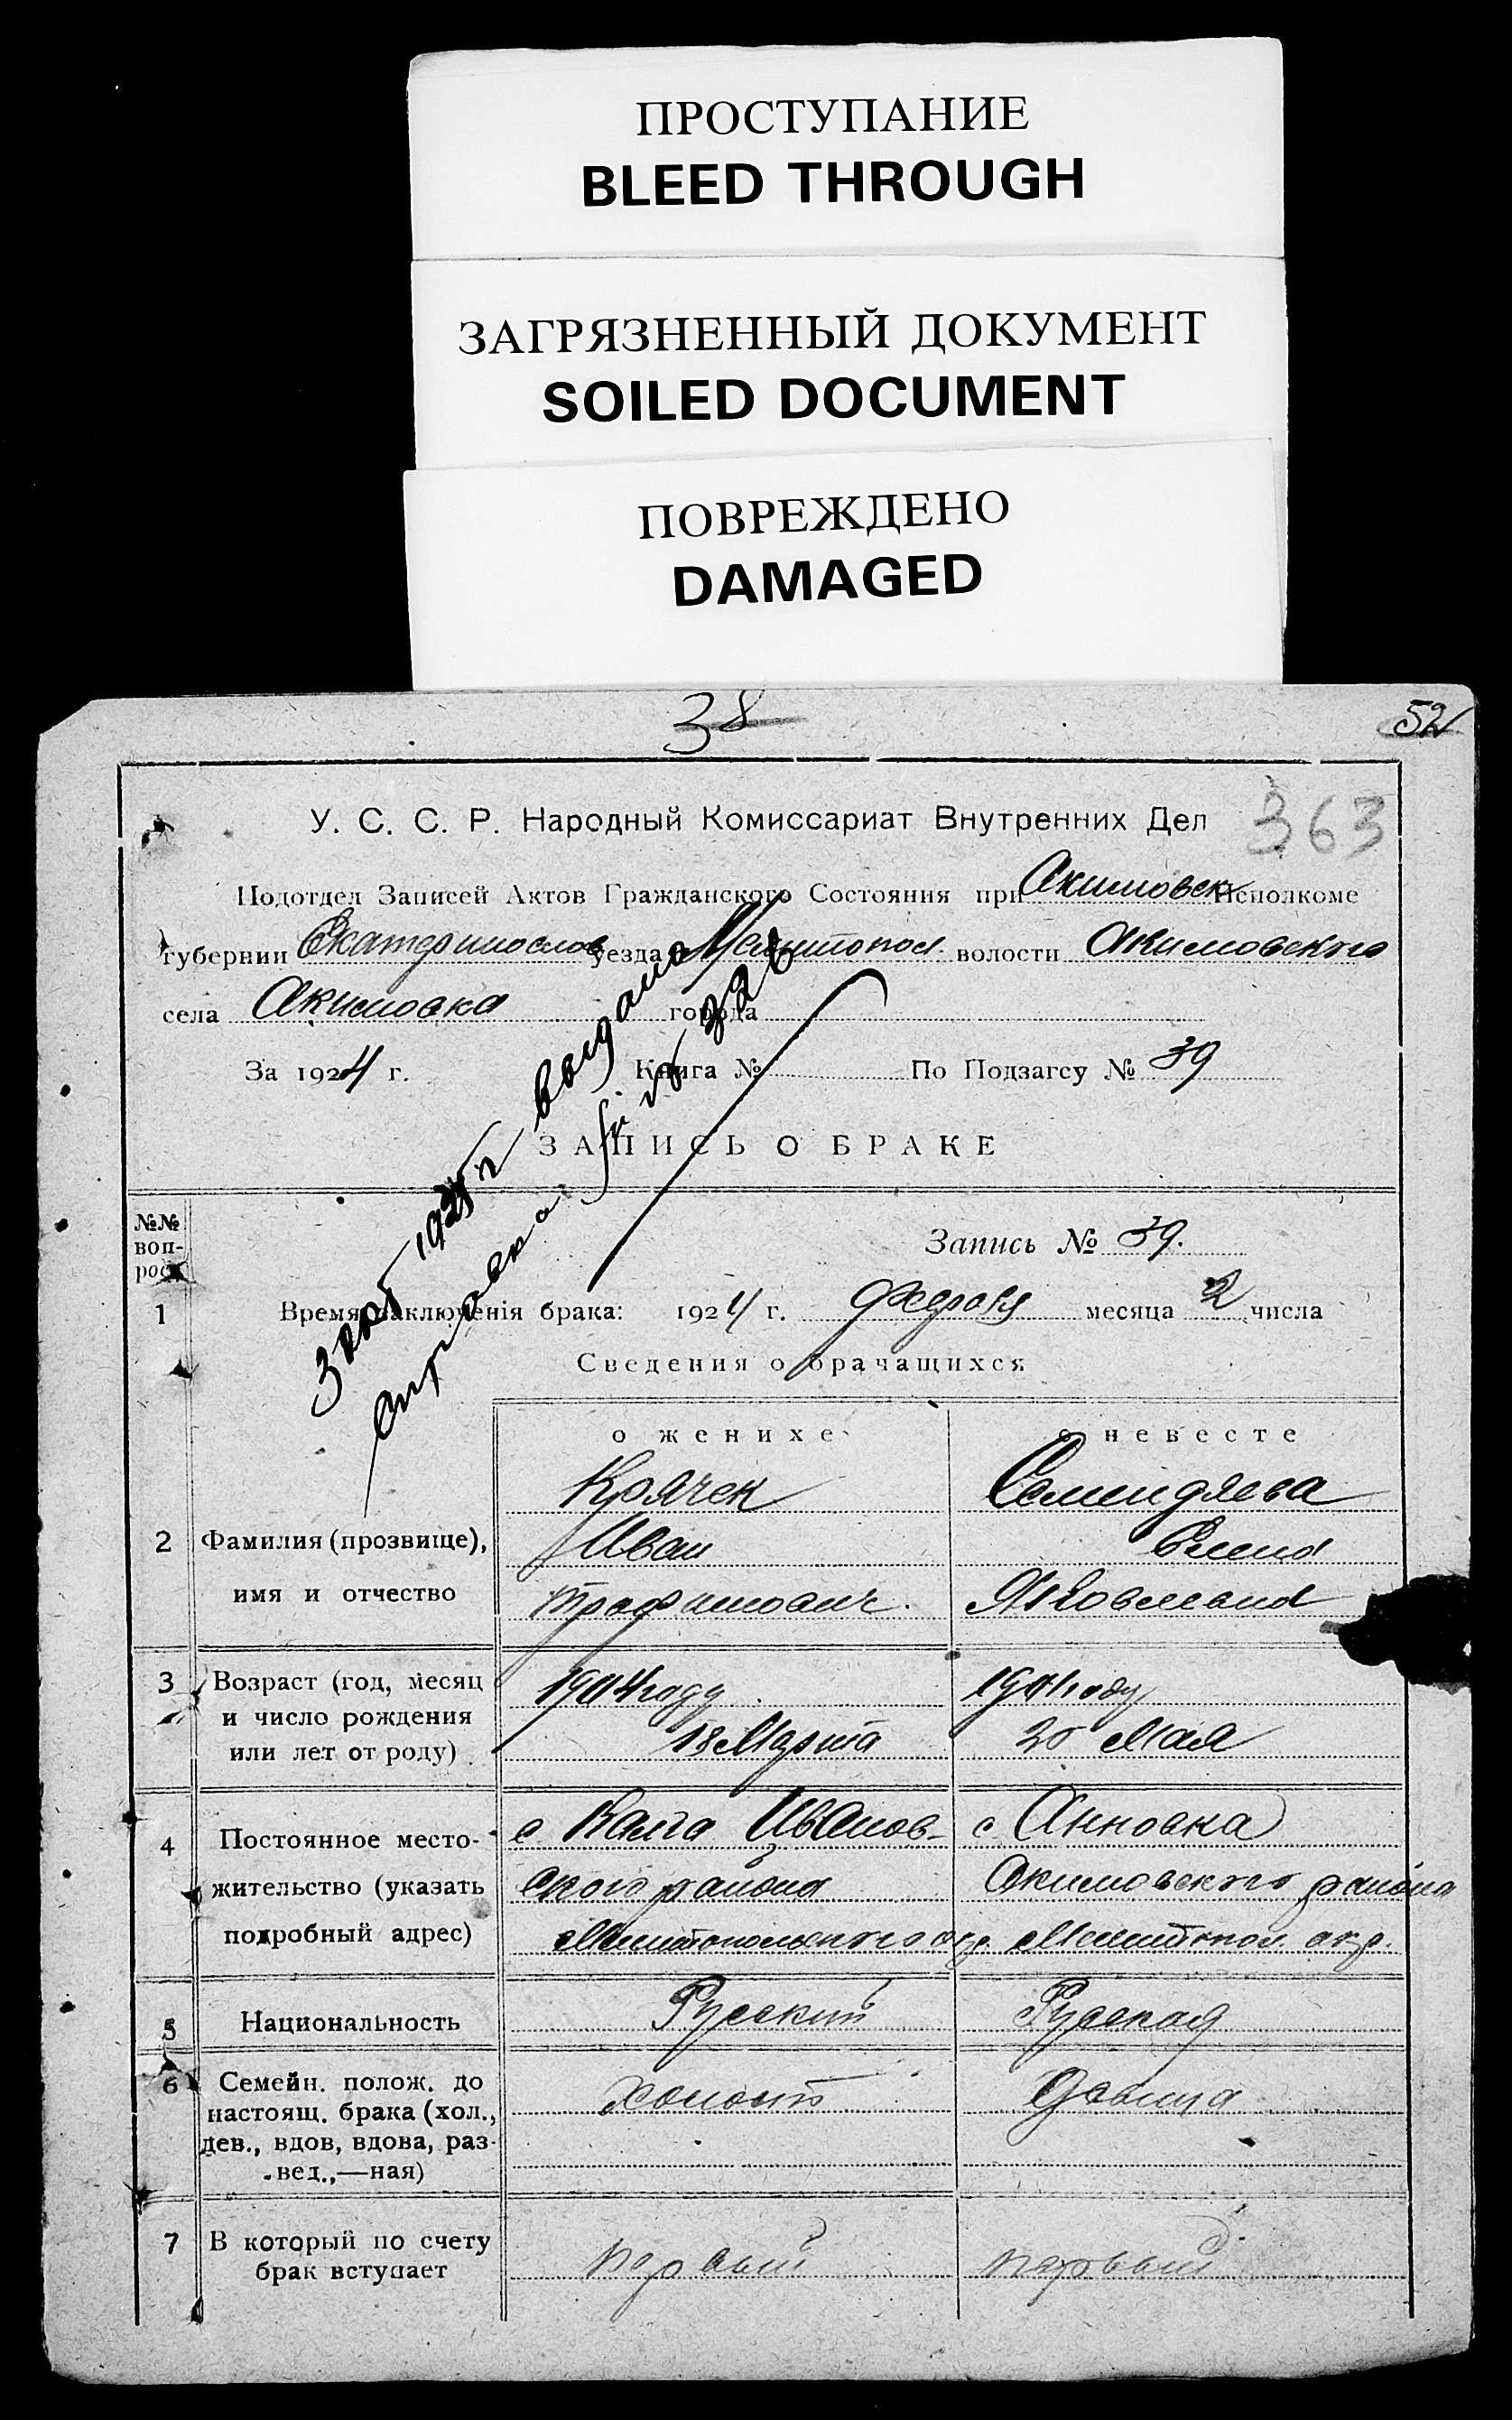 ПРОСТУПАНИЕ
BLEED THROUGH
ЗАГРЯЗНЕННЫЙ ДОКУМЕНТ
SOILED DOCUMENT
ПОВРЕЖДЕНО
DAMAGED
38
52
363
У. С. С. Р. Народный Комиссариат Внутренних Дел
Подотдел Записей Актов Гражданского Состояния при Акимовск Исполкоме
губернии Екатеринослав уезда Мелитопол. волости Акимовского
села Акимовка города
За 1924 г. Книга № По Подзагсу № 39
ЗАПИСЬ О БРАКЕ
выдана
справка
№№ воп-
рос.
Запись № 39.
1 Время заключенія брака: 1924 г. месяца 2 числа
Сведения о брачащихся
о женихе о невесте
Крячек Семендяева
2 Фамилия (прозвище), Иван Елена
имя и отчество Трофимович. Яковлевна
3 Возраст (год, месяц 1904 году 1901 году
и число рождения
или лет от роду) 18 Марта 20 Мая
4 Постоянное место- с Калга Ивановс- с Анновка
жительство (указать ского района Акимовского района
подробный адрес) Мелитопольского окр. Мелитопол. окр.
5 Национальность Руский Руская
6 Семейн. полож. до холост Девица
настоящ. брака (хол.,
дев., вдов, вдова, раз-
вед.,—ная)
7 В который по счету первый первый
брак вступает